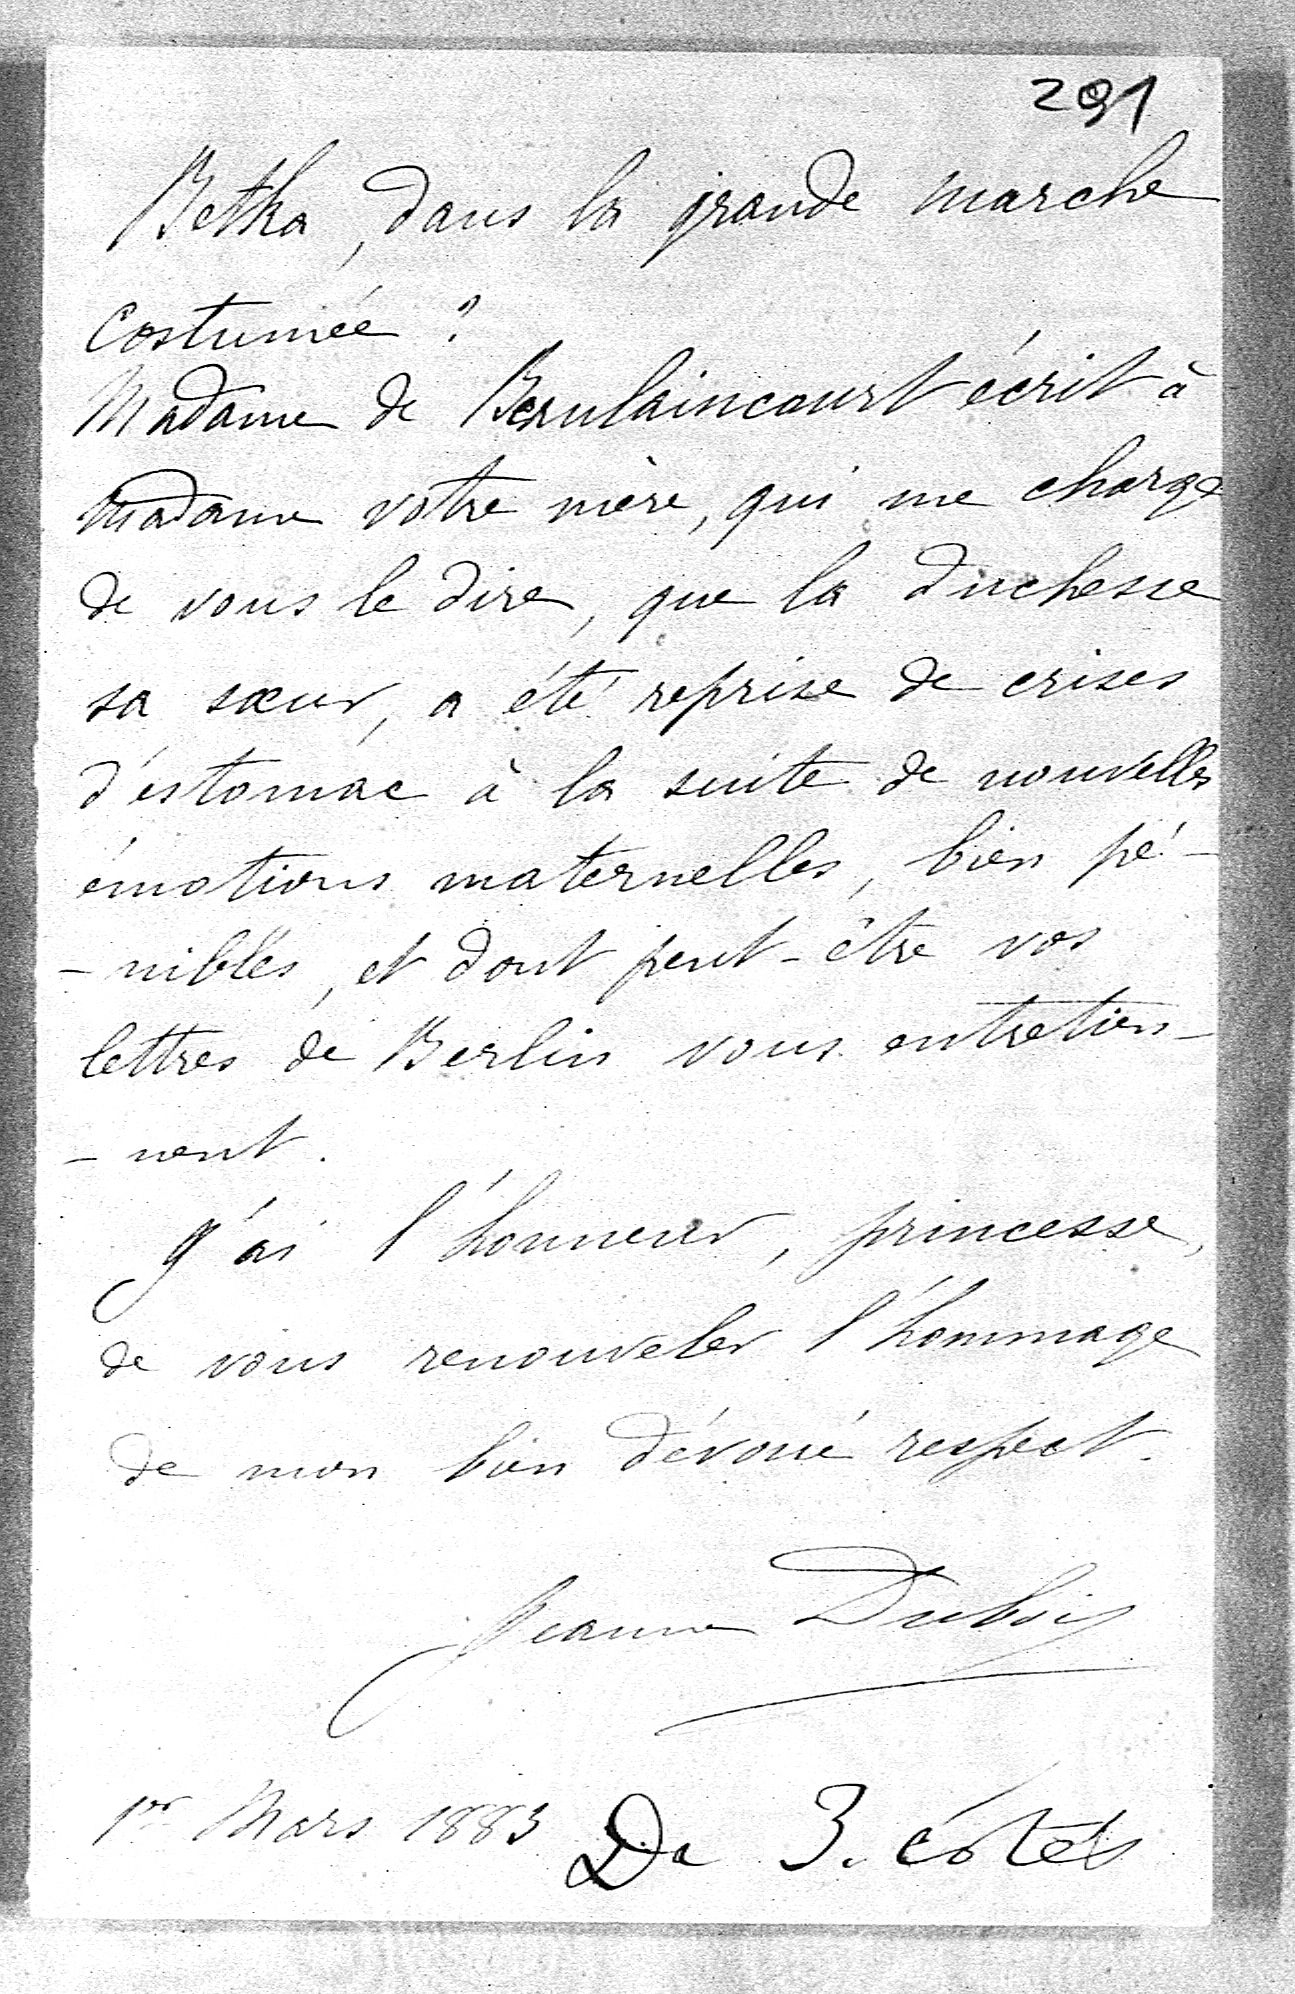 291
Betka, dans la grande marche
costumée ?
Madame de Beaulaincourt écrit à
Madame votre mère, qui me charge
de vous le dire, que la duchesse
sa sœur, a été reprise de crises
d'estomac à la suite de nouvelles
émotions maternelles, bien pé-
-nibles, et dont peut-être vos
lettres de Berlin vous entretien-
-nent.
J'ai l'honneur, princesse,
de vous renouveler l'hommage
de mon bien dévoué respect.
Jeanne Dubois
1er Mars 1883
De 3. côtés